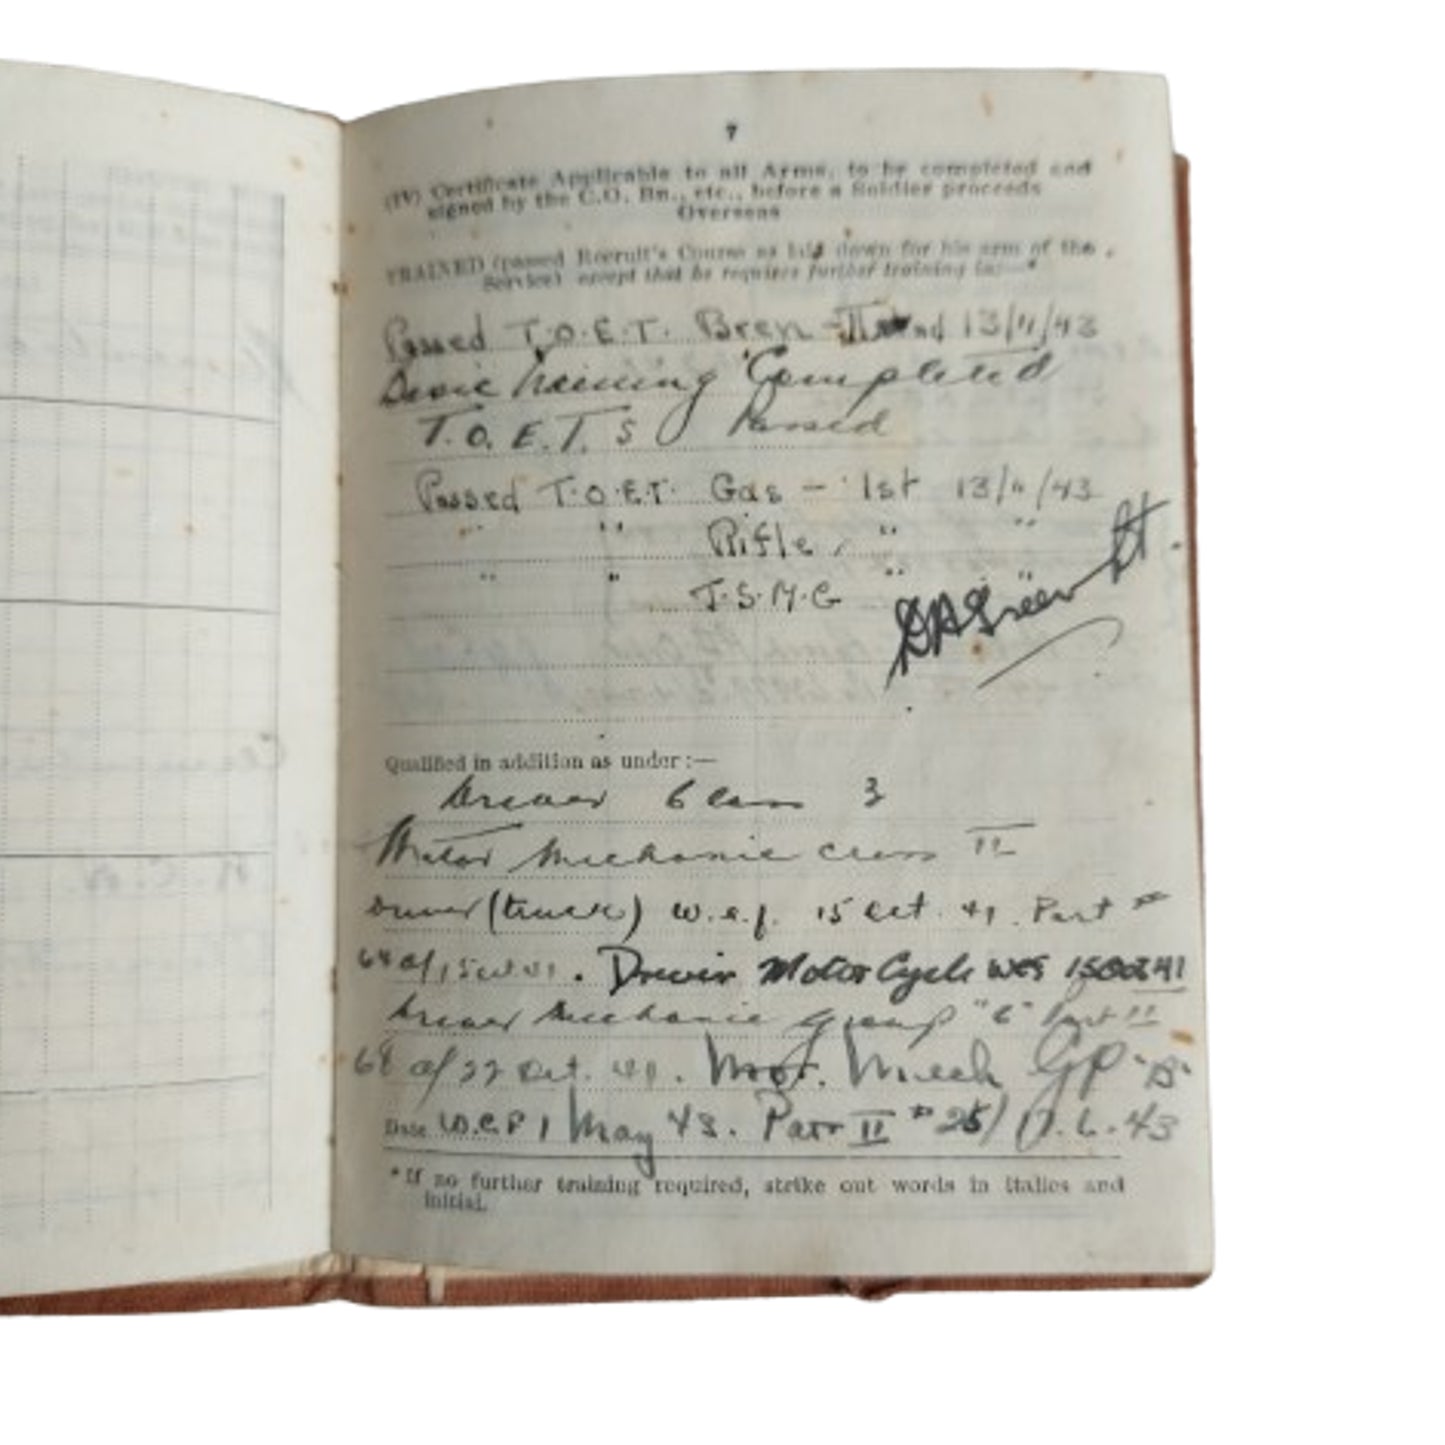 7
(IV) Certificate Applicable to all Arms, to be completed and
signed by the C.O. Bn., etc., before a Soldier proceeds
Overseas
TRAINED (passed Recruit's Course as laid down for his arm of the
Service) except that he requires further training in:—*
Passed T.O.E.T. Bren 13/11/43
Basic Training Completed
T.O.E.T.S Passed
Passed T.O.E.T. Gas - 1st 13/11/43
" " Rifle, " "
" " T.S.M.G " "
Lt.
Qualified in addition as under:—
Driver Class 3
Motor Mechanic Class II
Driver (truck) w.e.f. 15 Oct. 41. Part
. Driver Motor Cycle WEF 15 Oct 41
Driver Mechanic Group "C" Part II
64 of 22 Oct. 41. Mot. Mech GP "B"
Date W.E.F 1 May 43. Part II # 25/ 17.6.43
*If no further training required, strike out words in italics and
initial.